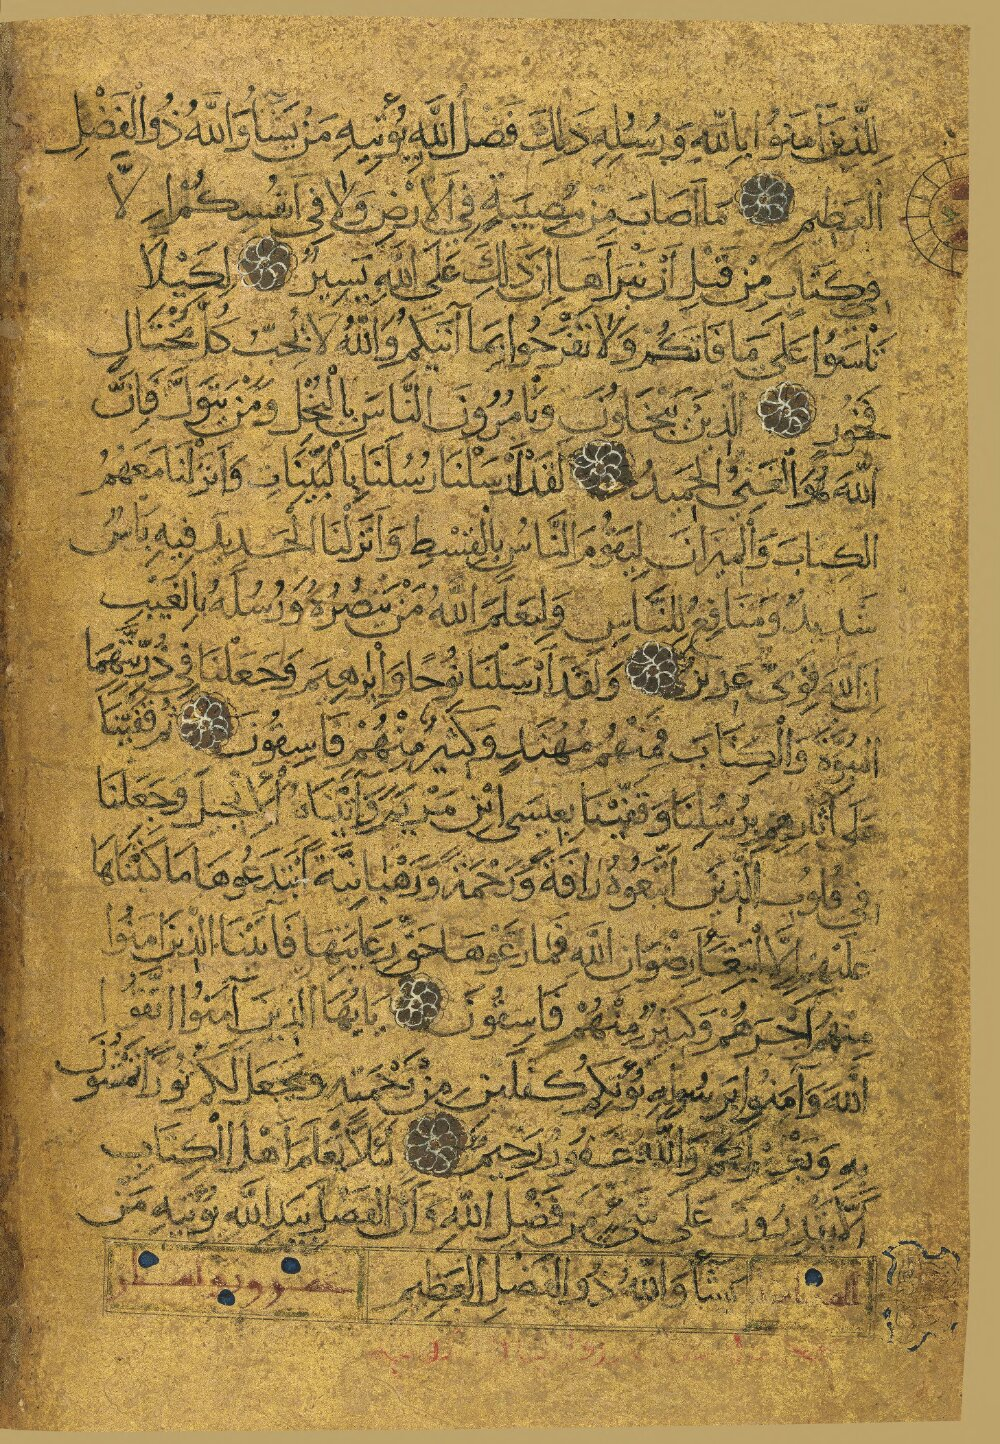 لِلَّذِينَ آمَنُوا بِاللَّهِ وَرُسُلِهِ ذَلِكَ فَضْلُ اللَّهِ يُؤْتِيهِ مَنْ يَشَاءُ وَاللَّهُ ذُو الْفَضْلِ
الْعَظِيمِ مَا أَصَابَ مِنْ مُصِيبَةٍ فِي الْأَرْضِ وَلَا فِي أَنْفُسِكُمْ إِلَّا
فِي كِتَابٍ مِنْ قَبْلِ أَنْ نَبْرَأَهَا إِنَّ ذَلِكَ عَلَى اللَّهِ يَسِيرٌ لِكَيْلَا
تَأْسَوْا عَلَى مَا فَاتَكُمْ وَلَا تَفْرَحُوا بِمَا آتَيكُمْ وَاللَّهُ لَا يُحِبُّ كُلَّ مُخْتَالٍ
فَخُورٍ الَّذِينَ يَبْخَلُونَ وَيَأْمُرُونَ النَّاسَ بِالْبُخْلِ وَمَنْ يَتَوَلَّ فَإِنَّ
اللَّهَ هُوَ الْغَنِيُّ الْحَمِيدُ لَقَدْ أَرْسَلْنَا رُسُلَنَا بِالْبَيِّنَاتِ وَأَنْزَلْنَا مَعَهُمُ
الْكِتَابَ وَالْمِيزَانَ لِيَقُومَ النَّاسُ بِالْقِسْطِ وَأَنْزَلْنَا الْحَدِيدَ فِيهِ بَأْسٌ
شَدِيدٌ وَمَنَافِعُ لِلنَّاسِ وَلِيَعْلَمَ اللَّهُ مَنْ يَنْصُرُهُ وَرُسُلَهُ بِالْغَيْبِ
إِنَّ اللَّهَ قَوِيٌّ عَزِيزٌ وَلَقَدْ أَرْسَلْنَا نُوحًا وَإِبْرَهِيمَ وَجَعَلْنَا فِي ذُرِّيَّتِهِمَا
النُّبُوَّةَ وَالْكِتَابَ فَمِنْهُمْ مُهْتَدٍ وَكَثِيرٌ مِنْهُمْ فَاسِقُونَ ثُمَّ قَفَّيْنَا
عَلَى آثَارِهِمْ بِرُسُلِنَا وَقَفَّيْنَا بِعِيسَى ابْنِ مَرْيَمَ وَآتَيْنَاهُ الْإِنْجِيلَ وَجَعَلْنَا
فِي قُلُوبِ الَّذِينَ اتَّبَعُوهُ رَأْفَةً وَرَحْمَةً وَرَهْبَانِيَّةً ابْتَدَعُوهَا مَا كَتَبْنَاهَا
عَلَيْهِمْ إِلَّا ابْتِغَاءَ رِضْوَانِ اللَّهِ فَمَا رَعَوْهَا حَقَّ رِعَايَتِهَا فَآتَيْنَا الَّذِينَ آمَنُوا
مِنْهُمْ أَجْرَهُمْ وَكَثِيرٌ مِنْهُمْ فَاسِقُونَ يَا أَيُّهَا الَّذِينَ آمَنُوا اتَّقُوا
اللَّهَ وَآمِنُوا بِرَسُولِهِ يُؤْتِكُمْ كِفْلَيْنِ مِنْ رَحْمَتِهِ وَيَجْعَلْ لَكُمْ نُورًا تَمْشُونَ
بِهِ وَيَغْفِرْ لَكُمْ وَاللَّهُ غَفُورٌ رَحِيمٌ لِئَلَّا يَعْلَمَ أَهْلُ الْكِتَابِ
أَلَّا يَقْدِرُونَ عَلَى شَيْءٍ مِنْ فَضْلِ اللَّهِ وَأَنَّ الْفَضْلَ بِيَدِ اللَّهِ يُؤْتِيهِ مَنْ
يَشَاءُ وَاللَّهُ ذُو الْفَضْلِ الْعَظِيمِ